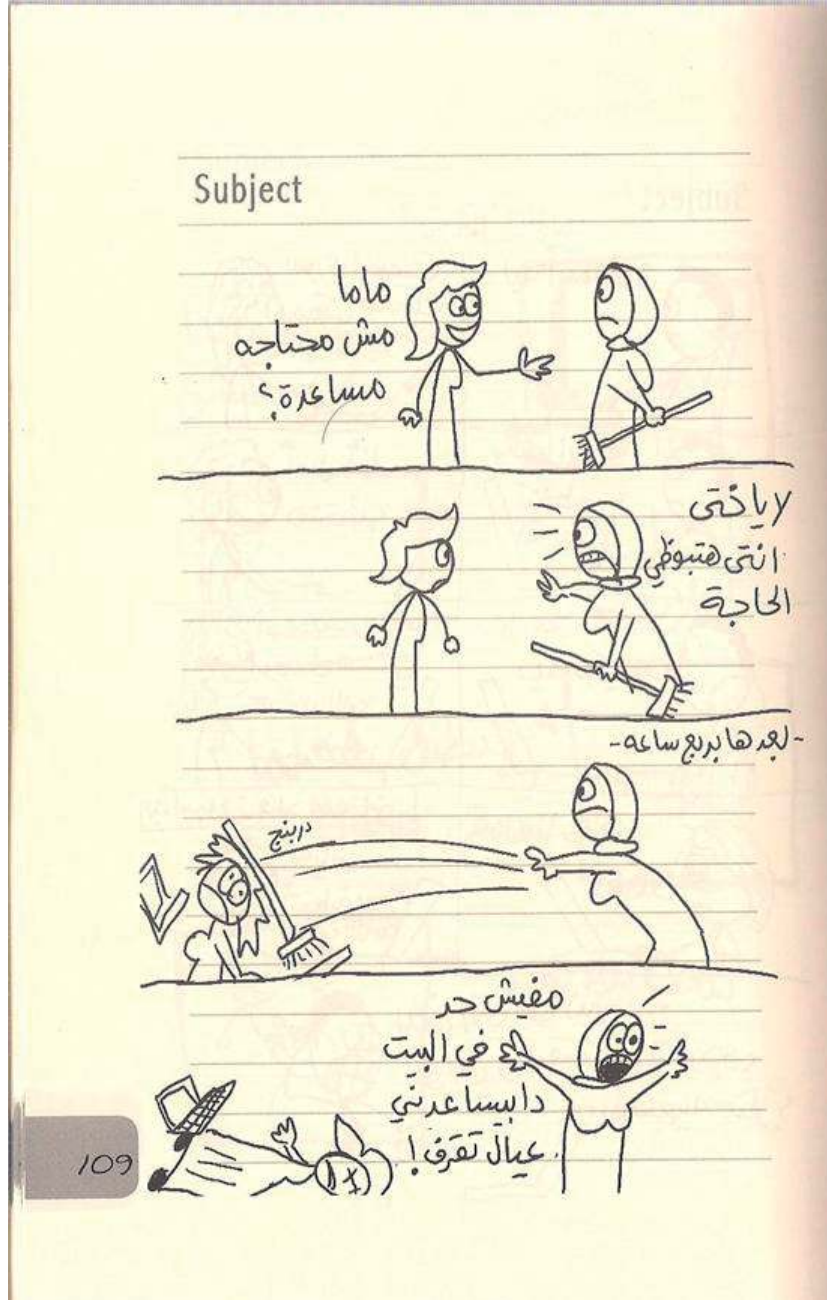 Subject
ماما
مش محتاجه
مساعدة؟
لا ياختى
انتى هتبوظي
الحاجة
- بعدها بربع ساعه -
دربنج
مفيش حد
في البيت
دا بيساعدني
عيال تقرف!
109